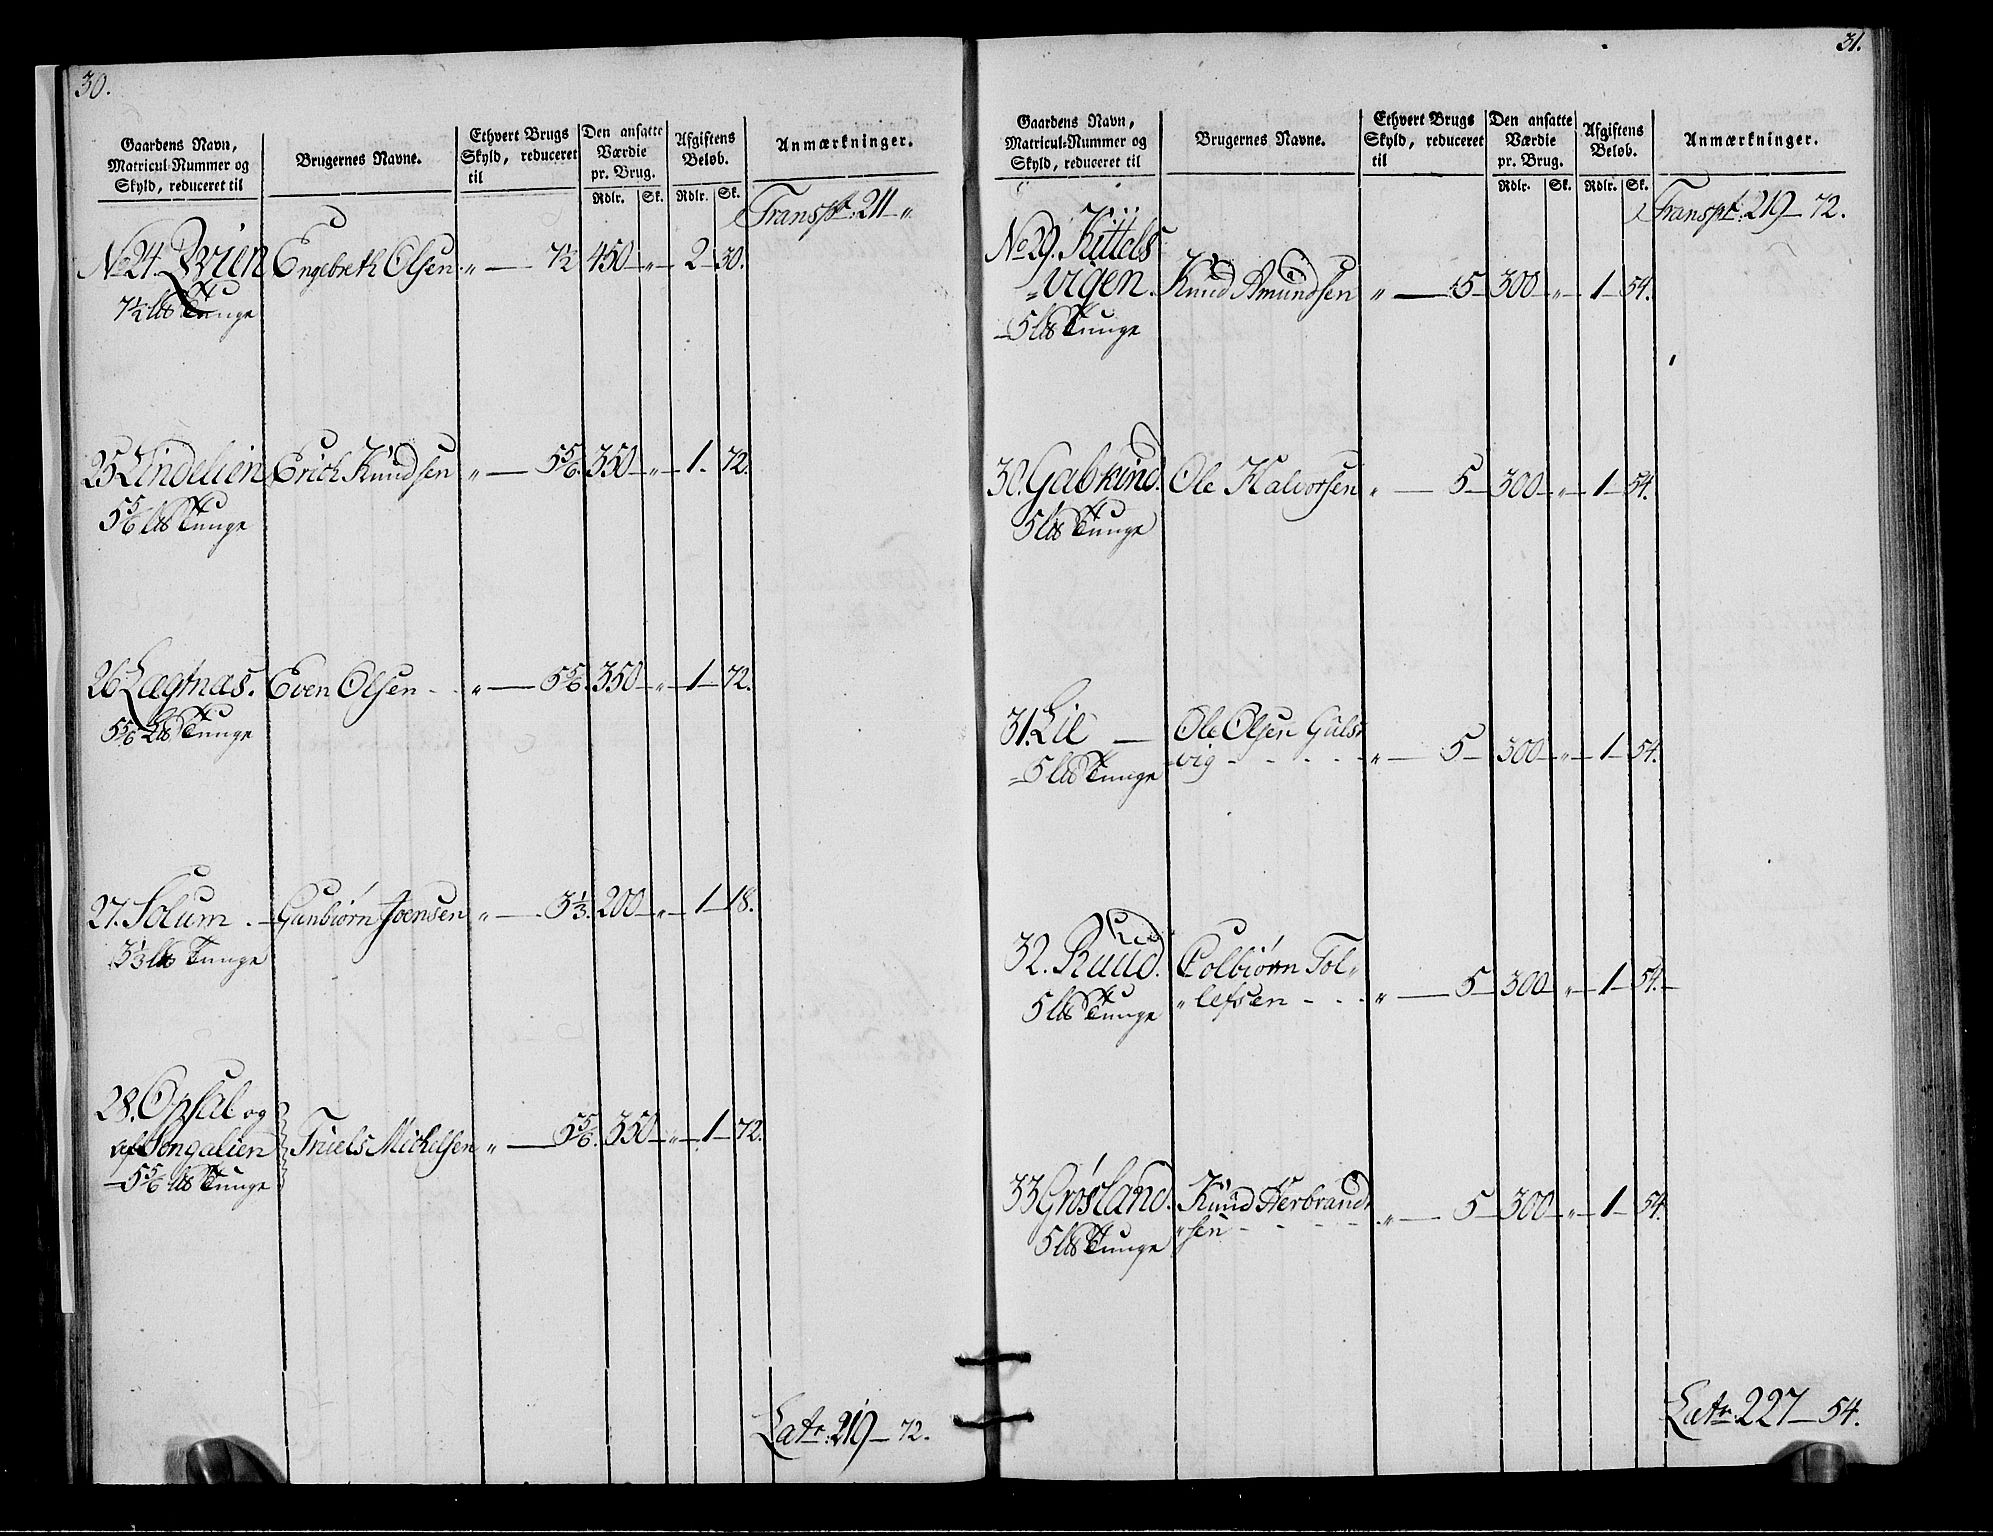 30.
Gaardens Navn, Matricul-Nummer og Skyld, reduceret til | Brugernes Navne. | Ethvert Brugs Skyld, reduceret til | Den ansatte Værdie pr. Brug. Rdlr. Sk. | Afgiftens Beløb. Rdlr. Sk. | Anmærkninger.
Transpt: 211 „
No 24 Engebreth Olsen „ — 7½ 450 „ 2 30.
7½ lb Tunge
25 Lindelien Erich Knudsen „ — 5 5/6. 350 „ 1. 72.
5 5/6 lb Tunge
26 Lægtnas. Even Olsen - „ — 5 5/6. 350 „ 1 72.
5 5/6 lb Tunge
27. Solum. Gunbiørn Joensen „ — 3 1/3. 200 „ 1 18.
3 1/3 lb Tunge
28. Opsal og
af Tongalien Truels Michelsen „ — 5 5/6. 350 „ 1 72.
5 5/6 lb Tunge
Latr: 219 — 72.
31.
Gaardens Navn, Matricul-Nummer og Skyld, reduceret til | Brugernes Navne. | Ethvert Brugs Skyld, reduceret til | Den ansatte Værdie pr. Brug. Rdlr. Sk. | Afgiftens Beløb. Rdlr. Sk. | Anmærkninger.
Transpt: 219 — 72.
No 29. Kittels
„vigen. Knud Amundsen „ — 5 300 „ 1 54.
5 lb Tunge
30. Gabkind. Ole Halvorsen „ — 5 300 „ 1 54.
5 lb Tunge
31. Lie — Ole Olsen Guls-
vig - - - - „ — 5 300 „ 1 54.
5 lb Tunge
32. Ruud. Colbiørn Tol„
„lefsen - - - „ — 5 300 „ 1 54.
5 lb Tunge
33 Grøsland. Knud Herbrand„
„sen - - - - „ — 5 300 „ 1 54.
5 lb Tunge
Latr: 227 — 54.